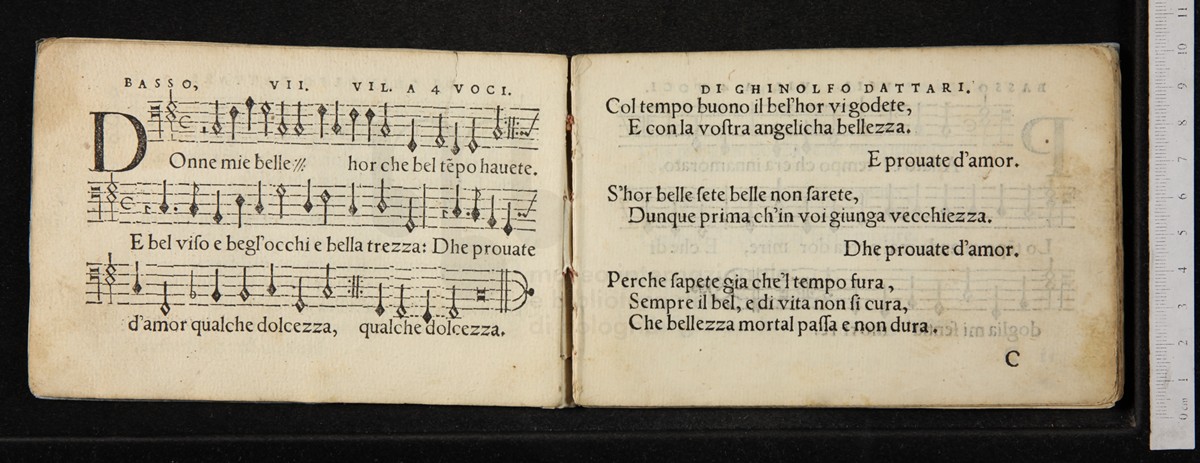 BASSO, VII. VIL. A 4 VOCI.
DOnne mie belle :/: hor che bel tẽpo hauete.
E bel viſo e begl'occhi e bella trezza: Dhe prouate
d'amor qualche dolcezza, qualche dolcezza.
DI GHINOLFO DATTARI.
Col tempo buono il bel'hor vi godete,
E con la voſtra angelicha bellezza.
E prouate d'amor.
S'hor belle ſete belle non ſarete,
Dunque prima ch'in voi giunga vecchiezza.
Dhe prouate d'amor.
Perche ſapete gia che'l tempo fura,
Sempre il bel, e di vita non ſi cura,
Che bellezza mortal paſſa e non dura.
C
0 cm 1 2 3 4 5 6 7 8 9 10 11